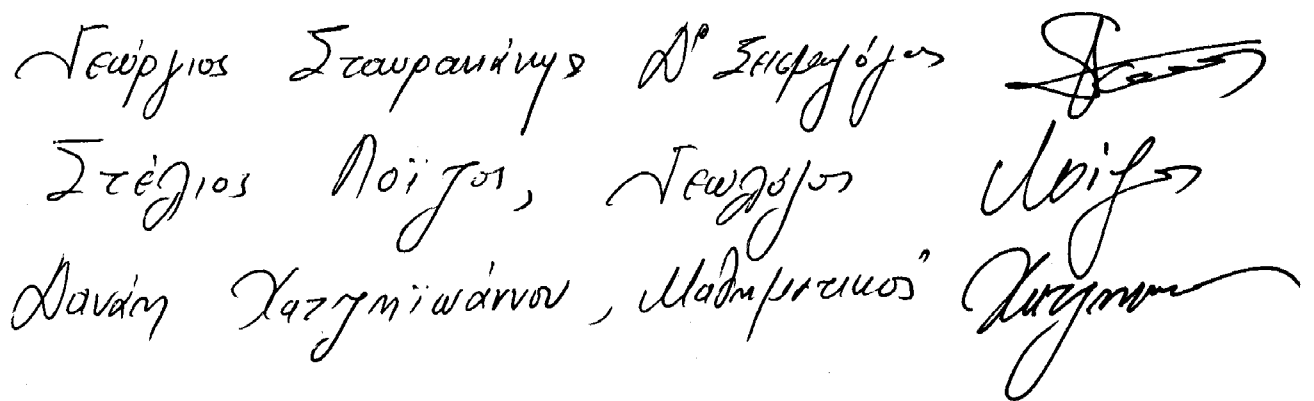 Γεώργιος Σταυρακάκης Δρ Σεισμολόγος
Στέλιος Λοΐζος, Γεωλόγος Λοΐζος
Δανάη Χατζηϊωάννου, Μαθηματικός